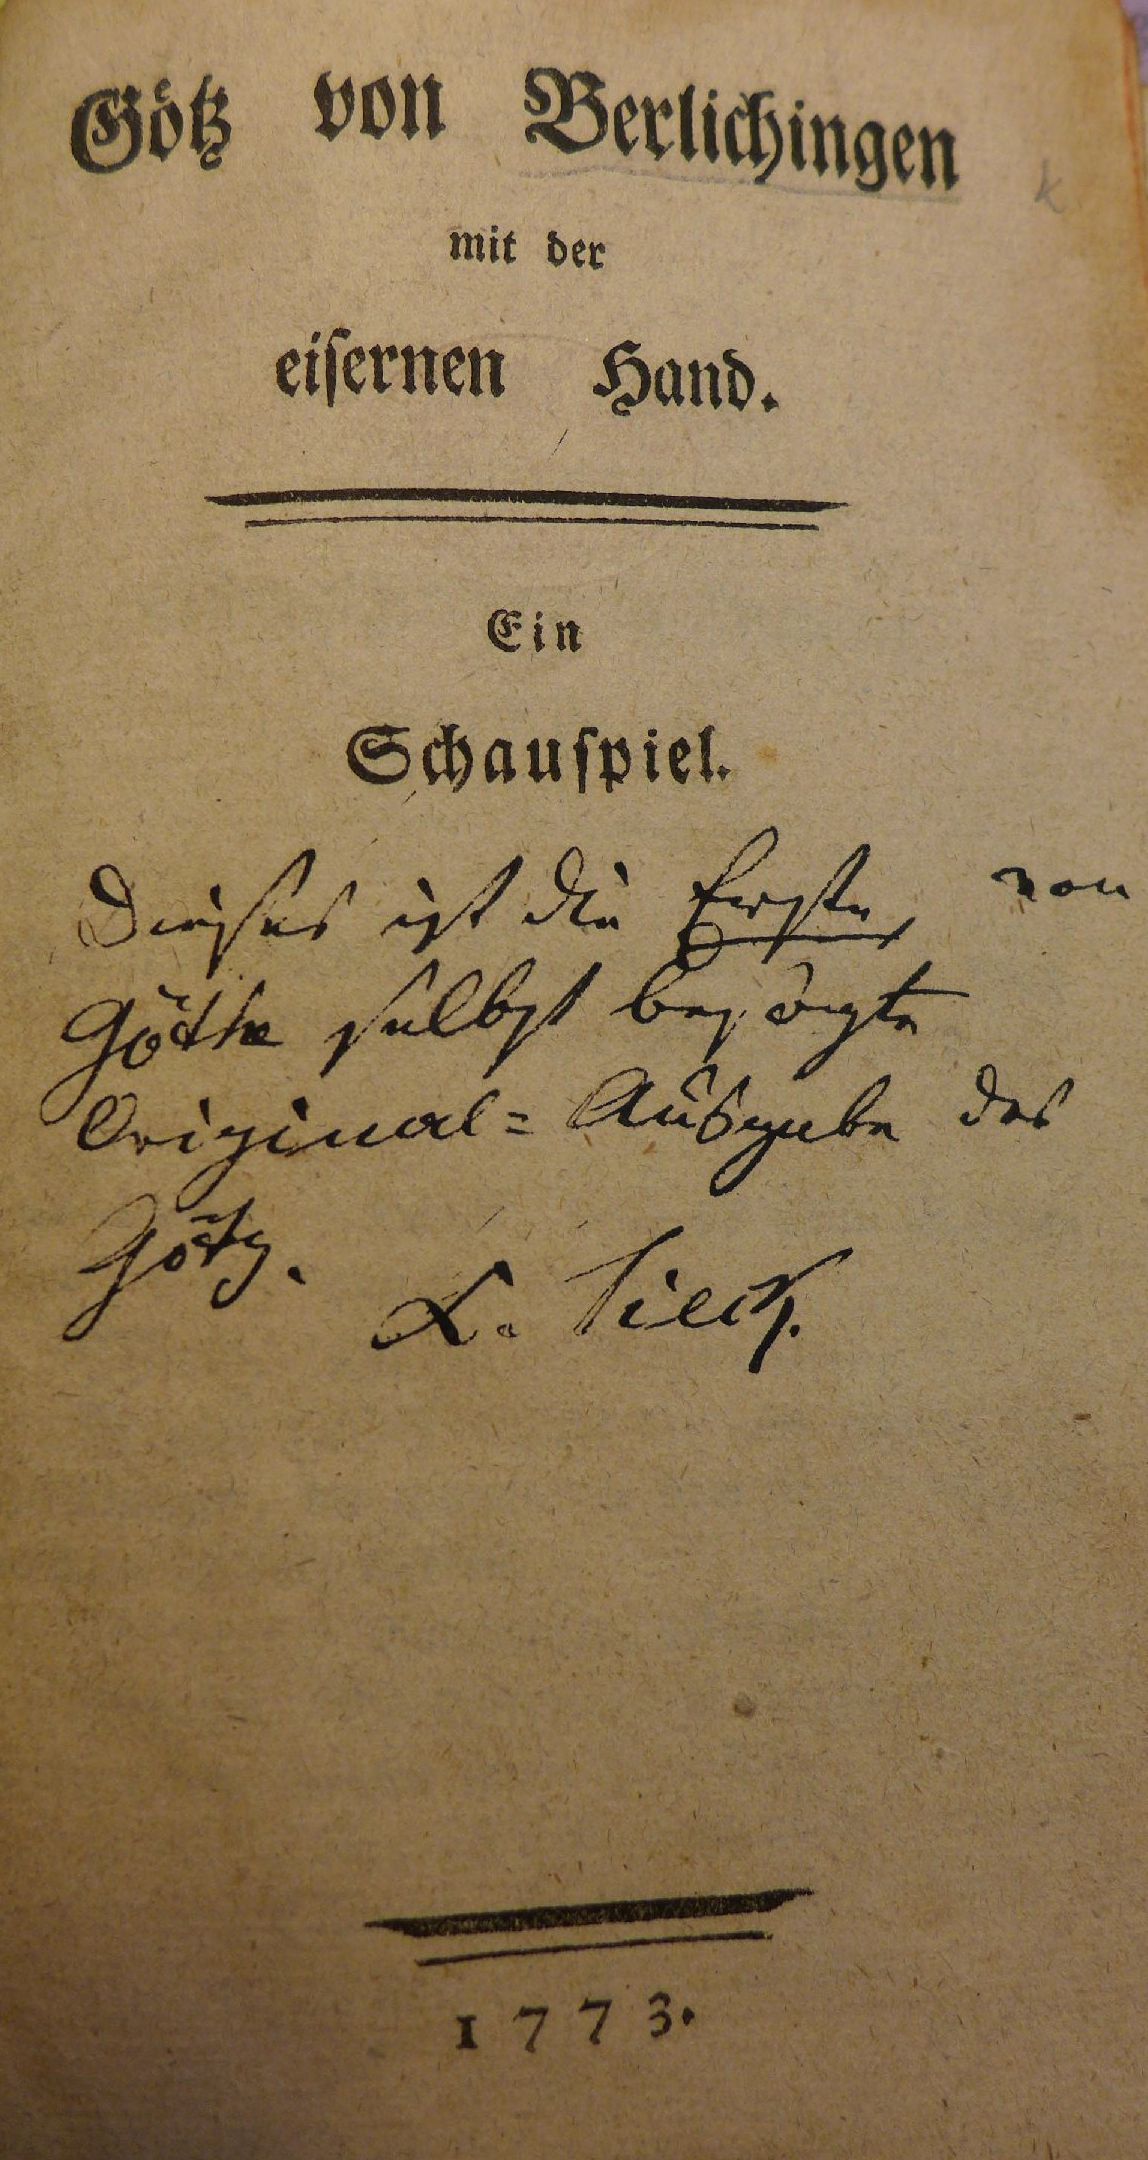 Götz von Berlichingen
mit der
eisernen Hand.
Ein
Schauspiel.
Dieses ist die Erste, von
Göthe selbst besorgte
Original= Ausgabe des
Götz.
L. Tieck.
1773.